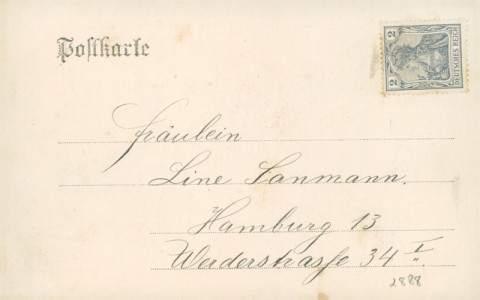 Postkarte
2 DEUTSCHES REICH 2
Fräulein
Line Sanmann.
Hamburg 13
Werderstrasse 34 I.
2888